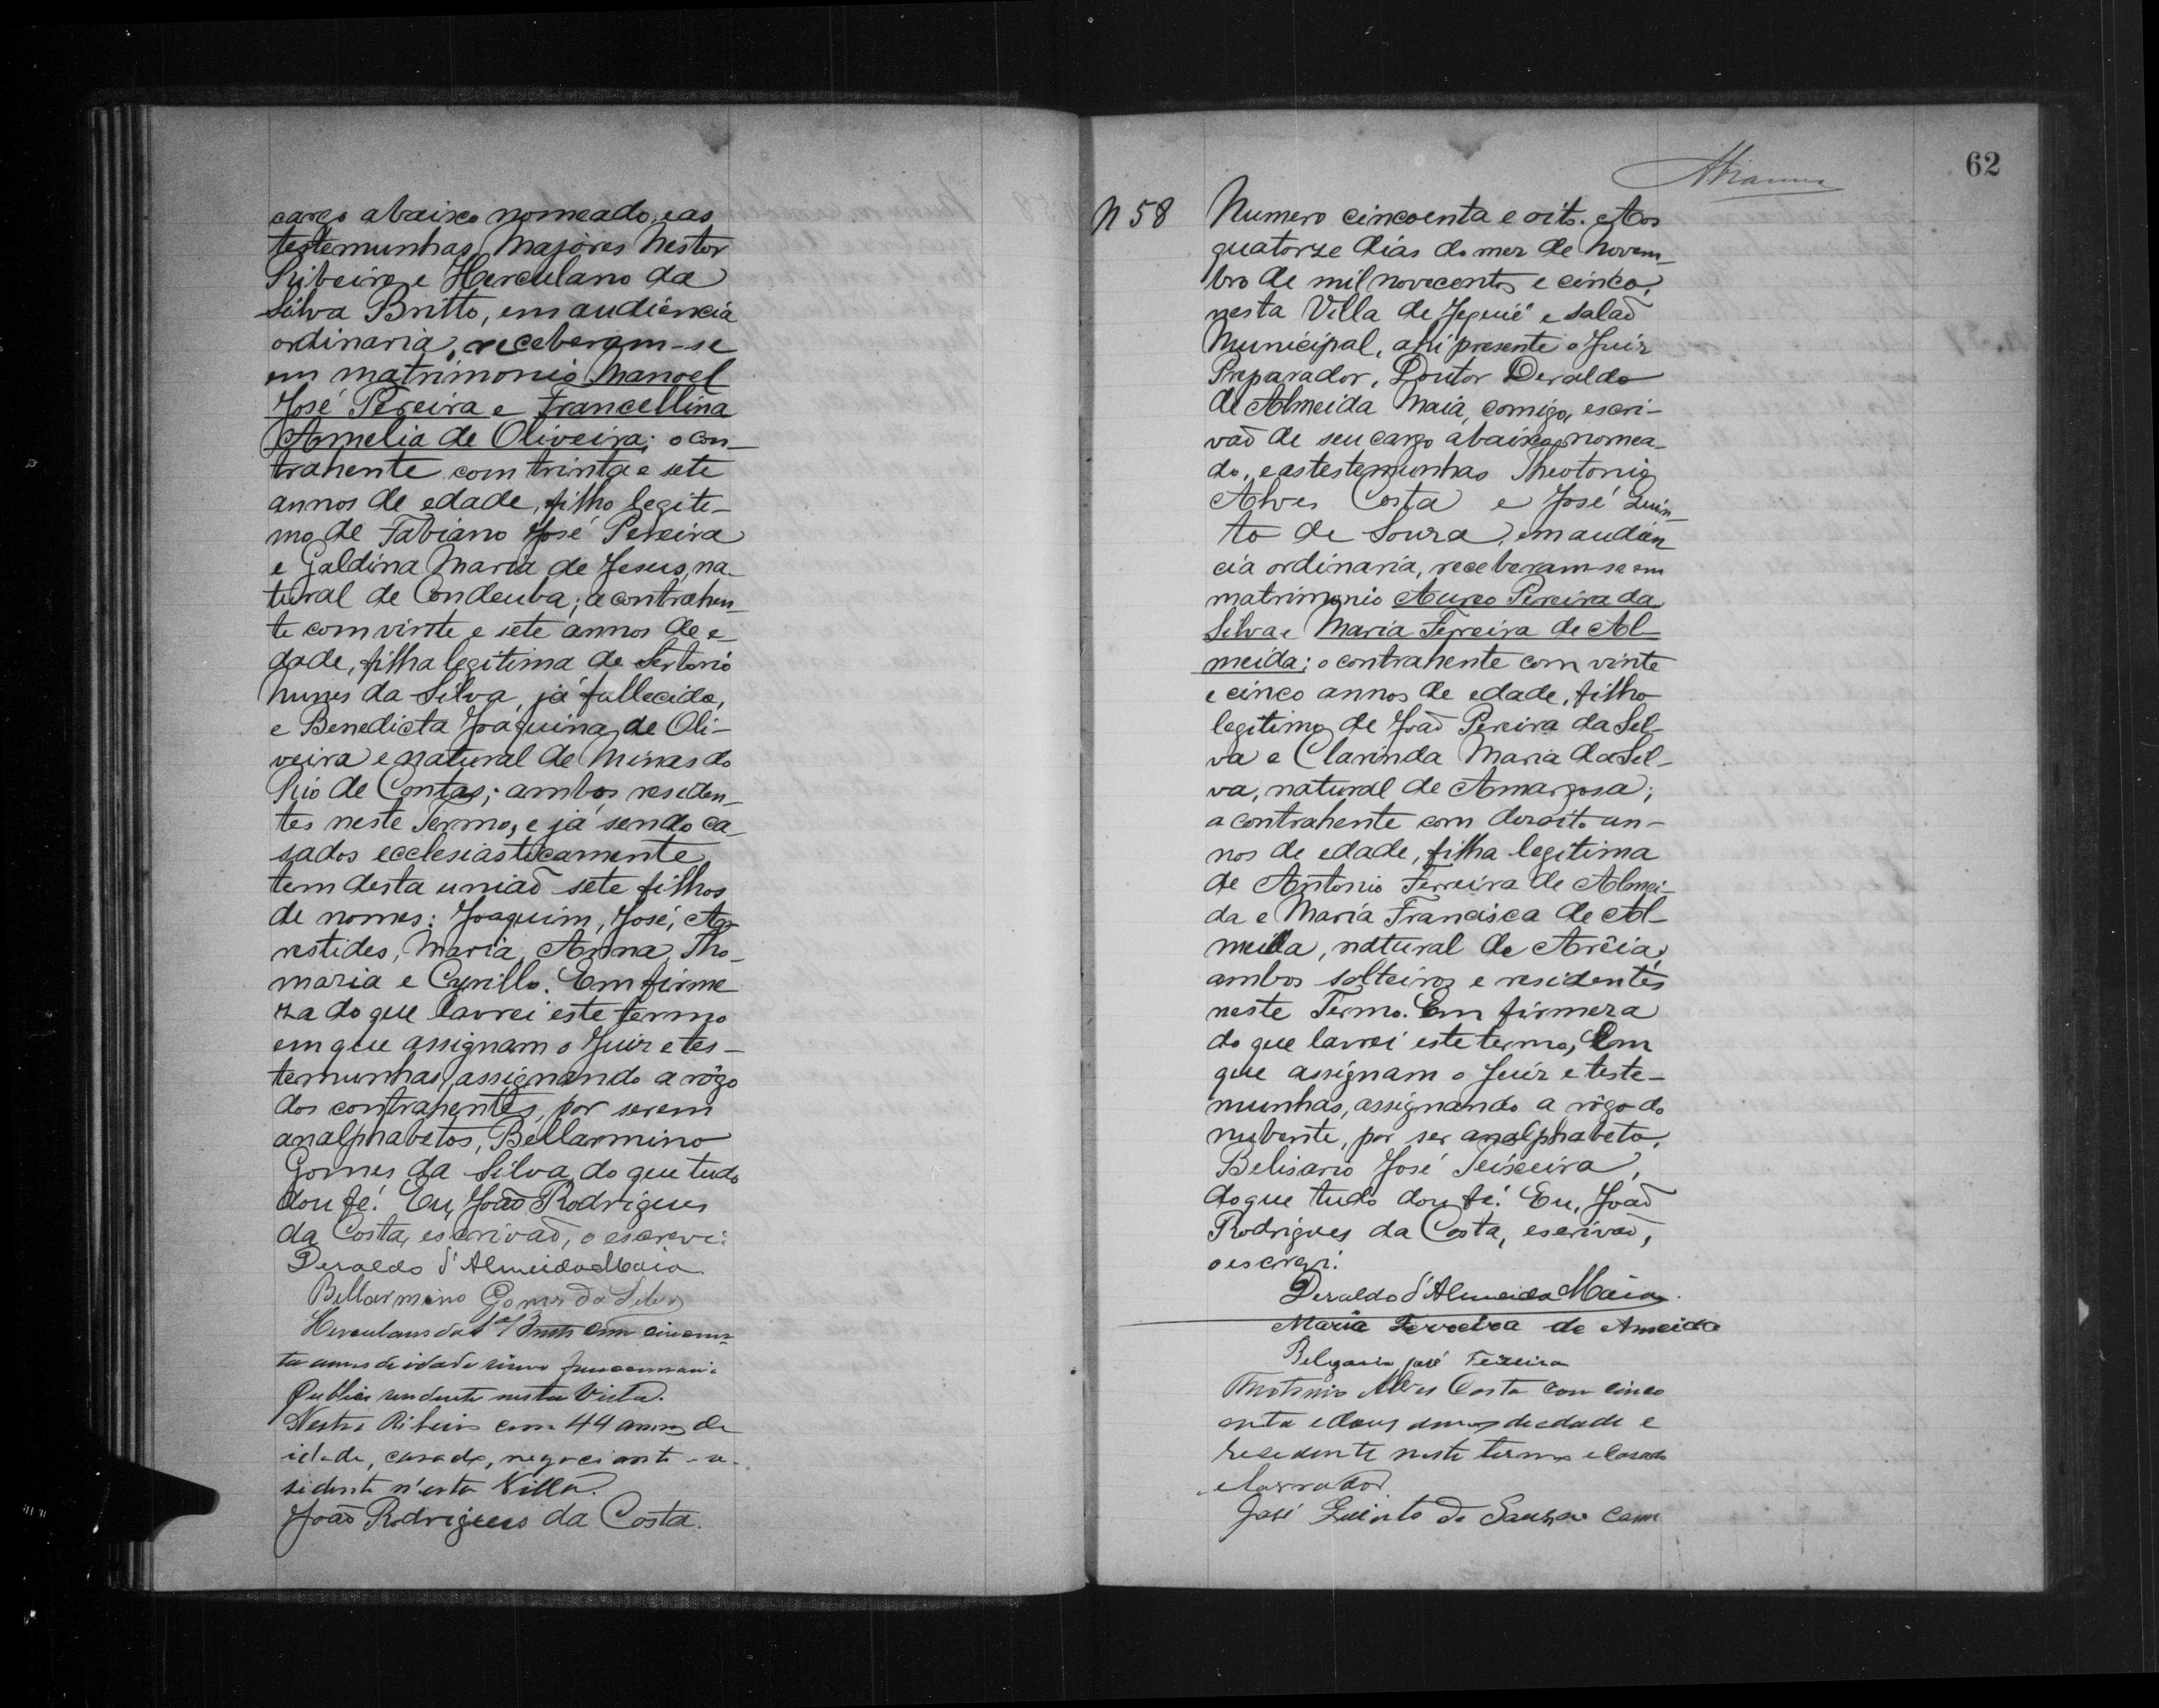 cargo abaixo nomeado, e as
testemunhas, Majores Nestor
Ribeiro e Herculano da
Silva Britto, em audiencia
ordinaria, receberam-se
em matrimonio Manoel
José Pereira e Francellina
Amelia de Oliveira; o con-
trahente com trinta e sete
annos de edade, filho legiti-
mo de Fabiano José Pereira
e Galdina Maria de Jesus, na-
tural de Condeuba; a contrahen-
te com vinte e sete annos de e-
dade, filha legitima de Sertorio
Nunes da Silva, já fallecido,
e Benedicta Joaquina de Oli-
veira e natural de Minas do
Rio de Contas; ambos residen-
tes neste Termo, e já sendo ca-
sados ecclesiasticamente
tem desta união sete filhos
de nomes: Joaquim, José, A-
restides, Maria, Anna, Tho-
maria e Cyrillo. Em firme
za do que lavrei este termo
em que assignam o Juiz e tes-
temunhas, assignando a rôgo
dos contrahentes, por serem
analphabetos, Bellarmino
Gomes da Silva, do que tudo
dou fé. Eu, João Rodrigues
da Costa, escrivão, o escrevi.
Deraldo d'Almeida Maia
Bellarmino Gomes da Silva
Herculano da Sa Britto com cincoen-
ta annos de idade
Publico residente nesta Villa.
Nestor Ribeiro com 44 annos de
idade, casado, negociante - re-
sidente n'esta Villa.
João Rodrigues da Costa.
62
N 58
Numero cincoenta e oito. Aos
quatorze dias do mez de Novem-
bro de mil novecentos e cinco,
nesta Villa de Jequié e salão
Municipal, ahi presente o Juiz
Preparador, Doutor Deraldo
de Almeida Maia, comigo, escri-
vão de seu cargo abaixo nomea-
do, e as testemunhas Theotonio
Alves Costa e José Quin-
to de Souza, em audien
cia ordinaria, receberam-se em
matrimonio Aureo Pereira da
Silva e Maria Ferreira de Al-
meida; o contrahente com vinte
e cinco annos de edade, filho
legitimo de João Pereira da Sil-
va e Clarinda Maria da Sil-
va, natural de Amargosa;
a contrahente com dezoito an-
nos de edade, filha legitima
de Antonio Ferreira de Almei-
da e Maria Francisca de Al-
meida, natural de Arêia;
ambos solteiros e residentes
neste Termo. Em firmeza
do que lavrei este termo, Em
que assignam o Juiz e teste-
munhas, assignando a rôgo do
nubente, por ser analphabeto,
Belisario José Teixeira,
do que tudo dou fé. Eu, João
Rodrigues da Costa, escrivão,
o escrevi.
Deraldo d'Almeida Maia.
Maria Ferreira de Ameida
Belizario José Teixeira
Thotonio Alves Costa com cinco
enta e dous annos de edade e
rezedente neste termo e Casado
e larrador.
José Quinto de Sauza com